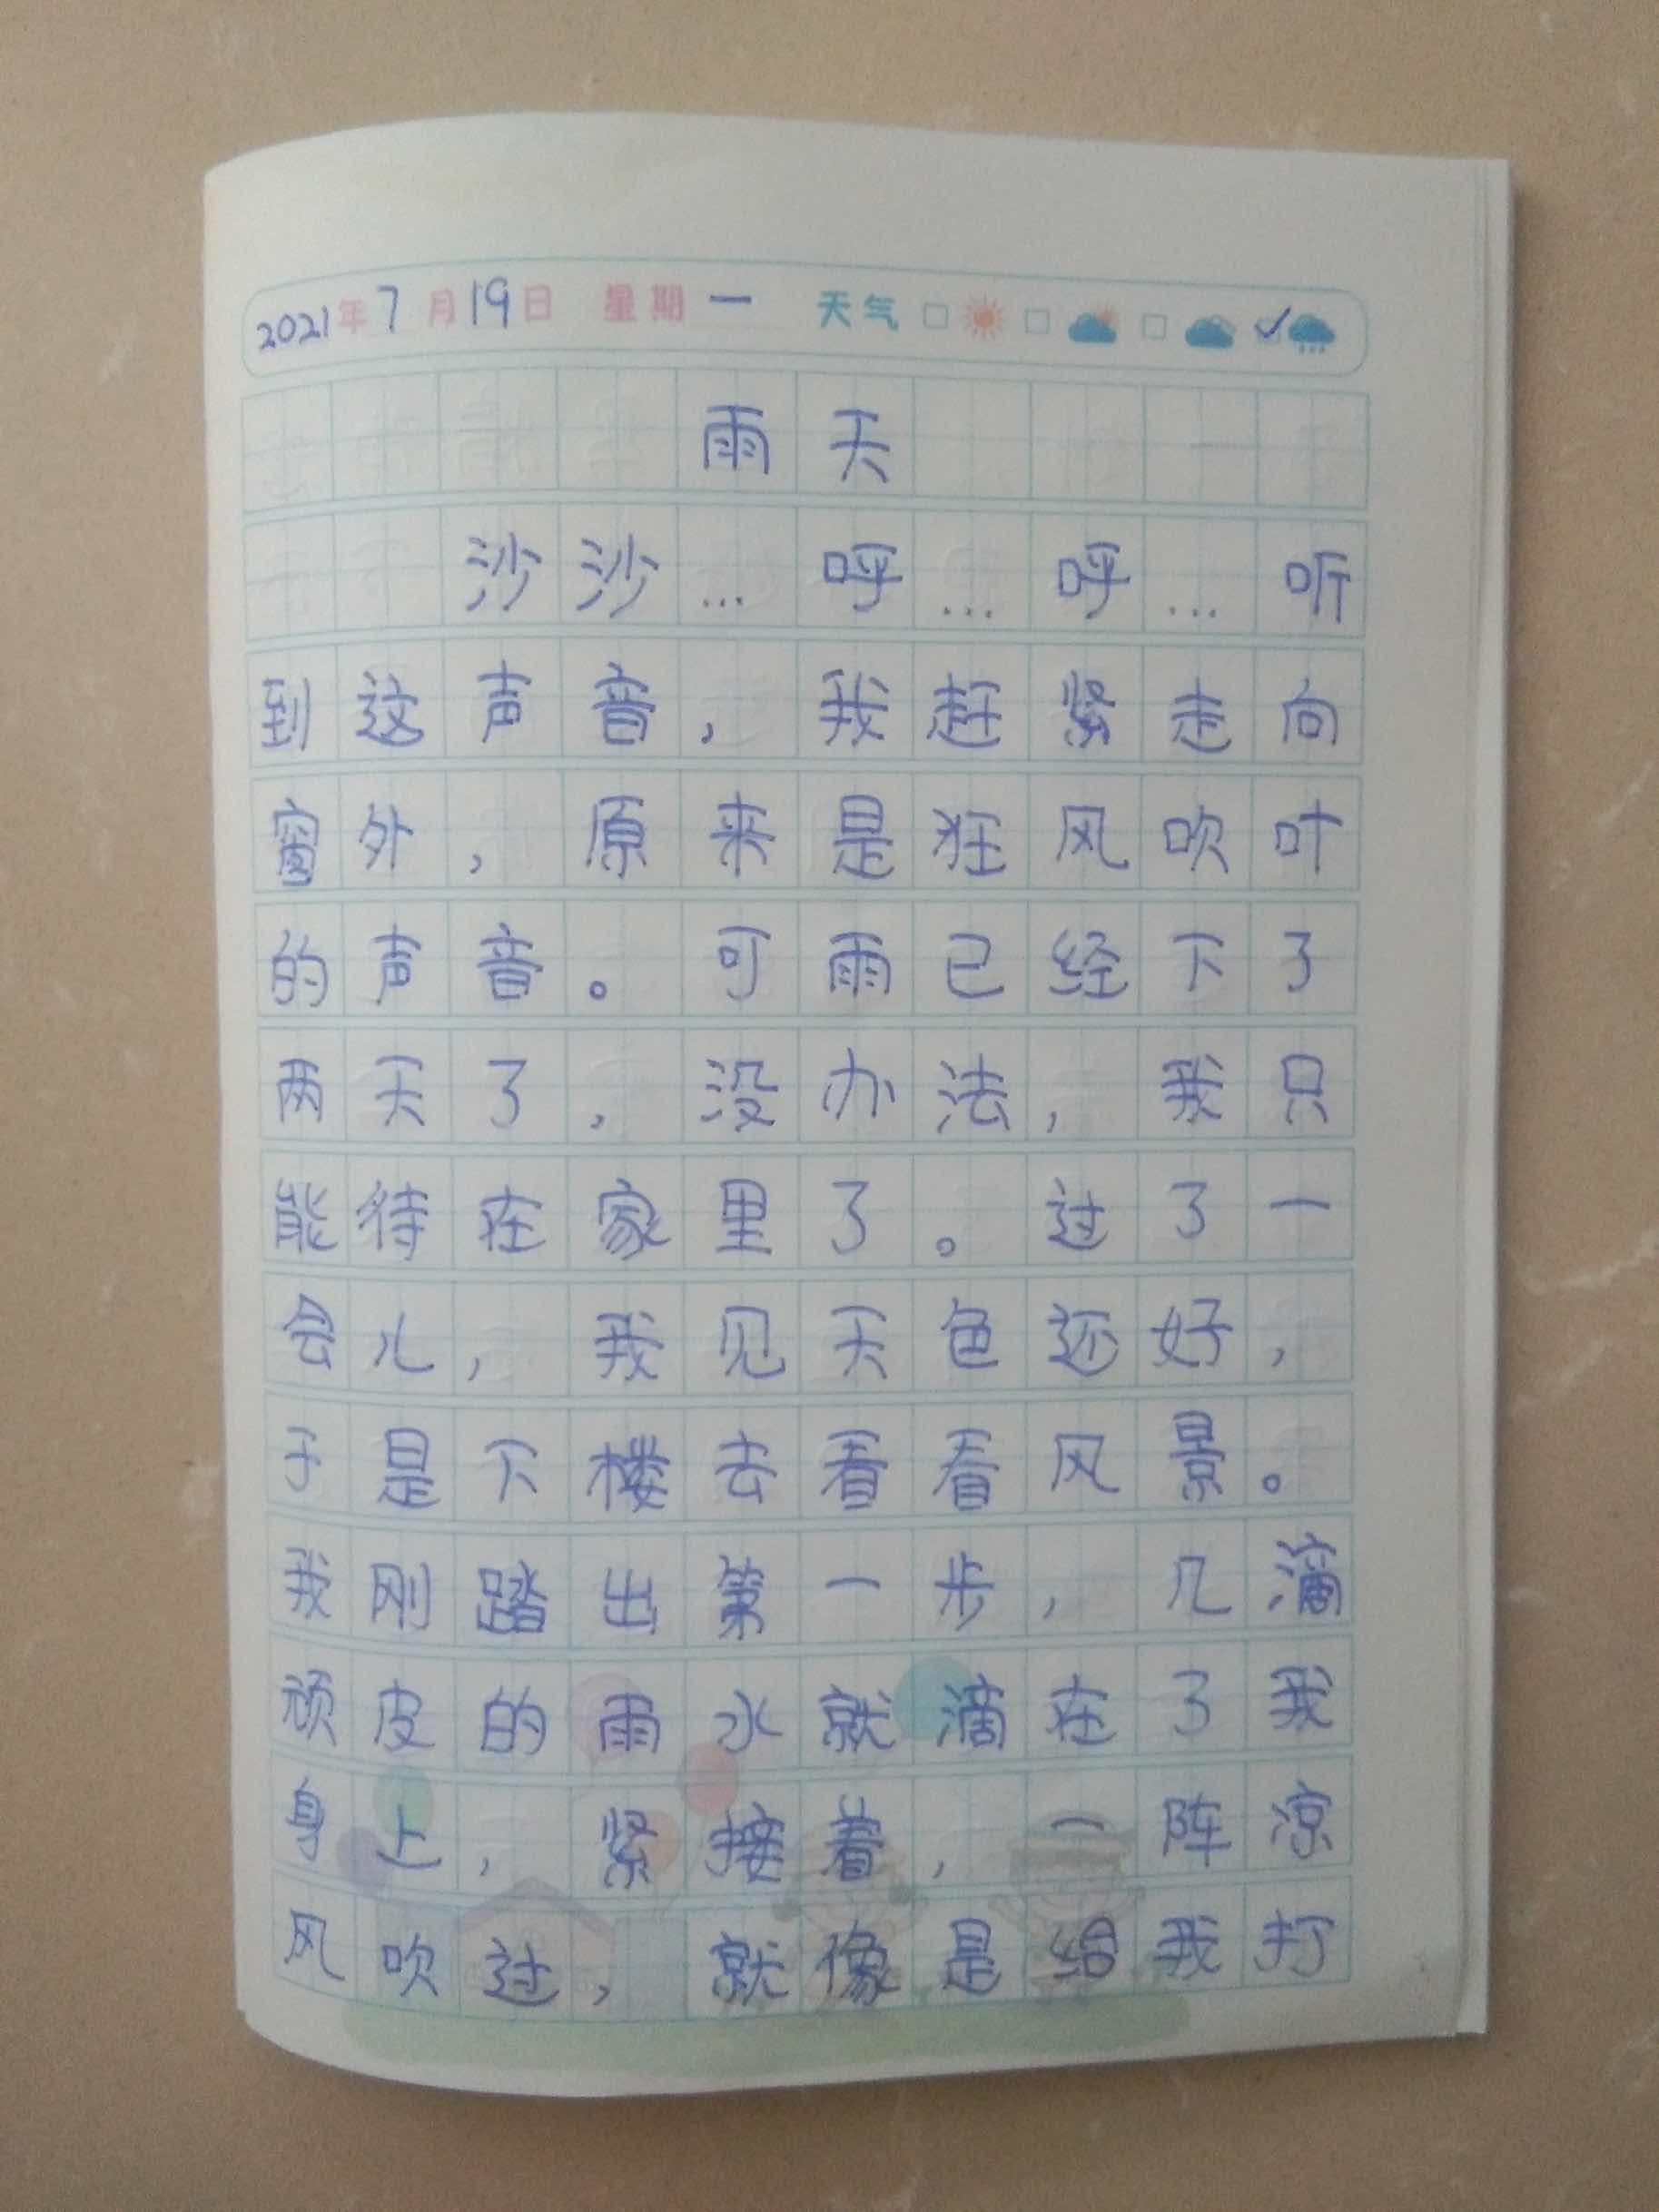 2021年7月19日 星期一 天气
雨天
沙沙…呼…呼…听
到这声音，我赶紧走向
窗外，原来是狂风吹叶
的声音。可雨已经下了
两天了，没办法，我只
能待在家里了。过了一
会儿，我见天色还好，
于是下楼去看看风景。
我刚踏出第一步，几滴
顽皮的雨水就滴在了我
身上，紧接着，一阵凉
风吹过，就像是给我打